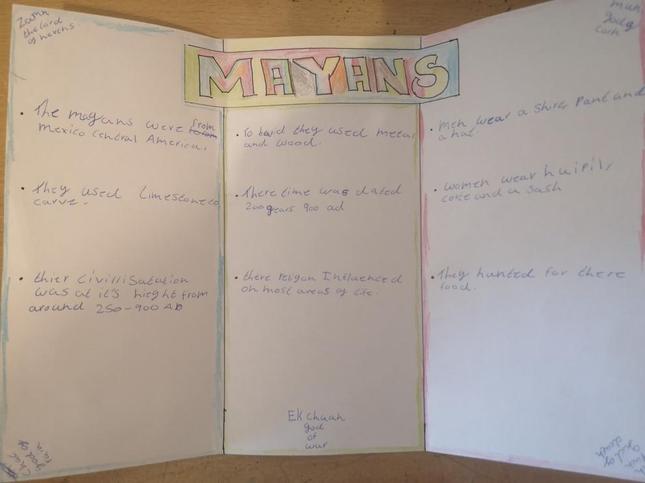 MAYANS
Zamn
the lord
of hevens
• The mayans were from
Mexico Central America.
• They used Limestone to
carve.
• thier Civillisatation
was at it's hieght from
around 250-900 AD
Chac
god of
rain
• To build they used metal
and wood.
• There time was dated
200 years 900 ad
• there religon Influenced
on most areas of life.
EK chuah
god
of
war
god of
• men wear a shirt, Pant and
a hat.
• women wear huipil,
corte and a sash
• They hunted for there
food.
god of